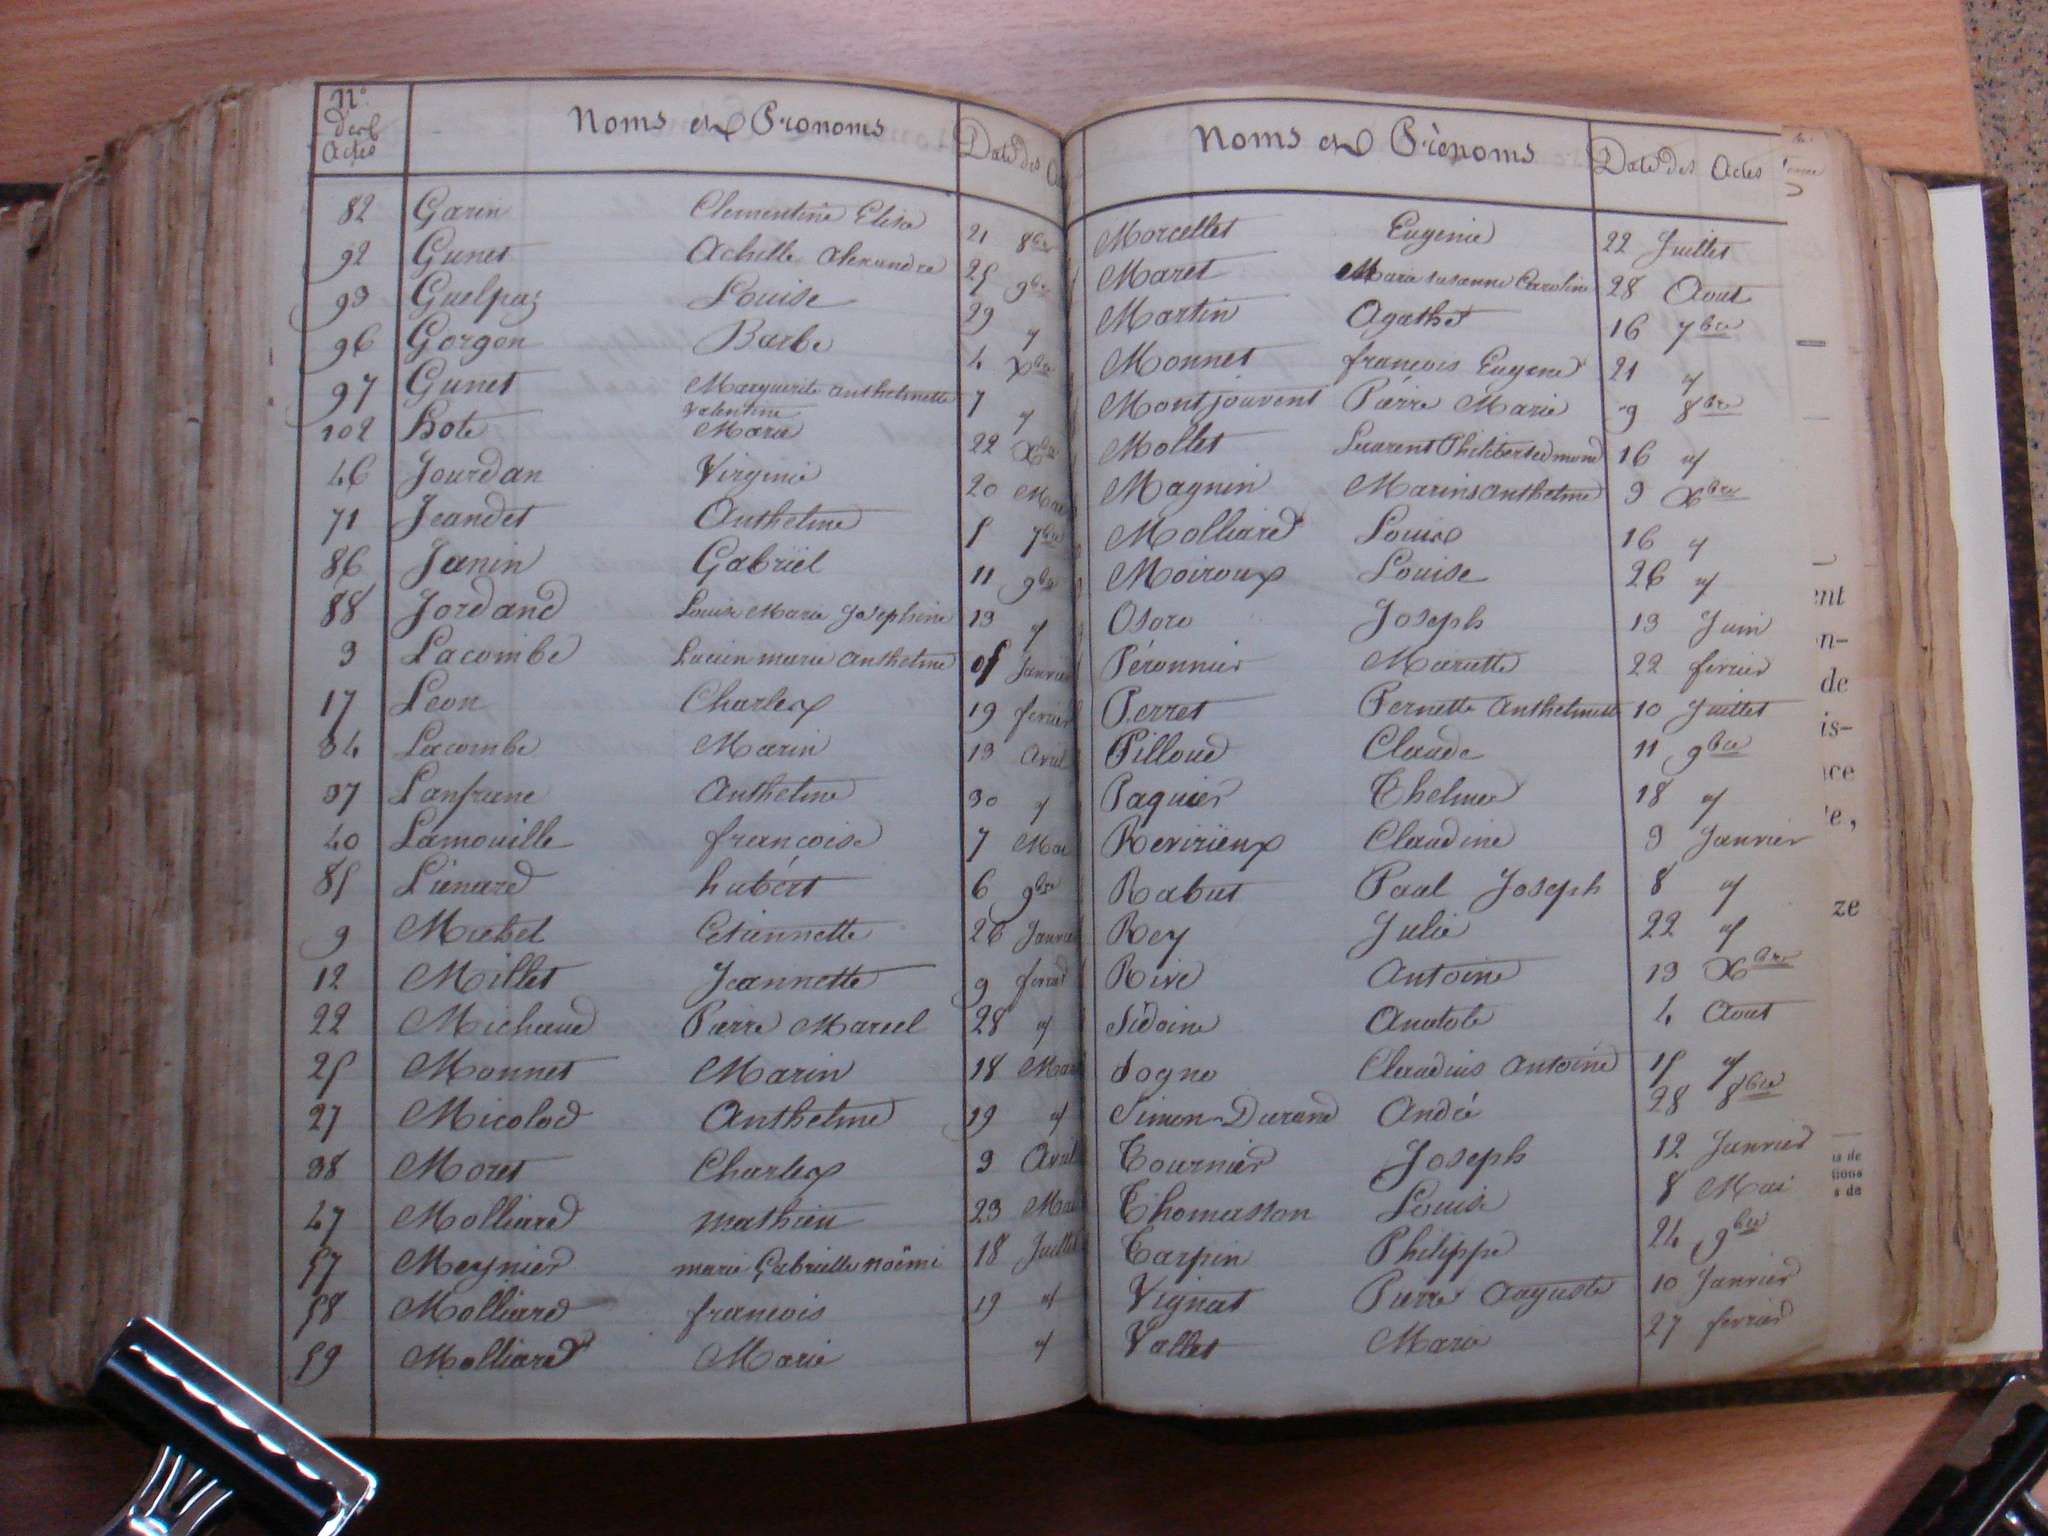 N.º des Actes Noms et Pronoms Date des
82 Garin Clementine Elisa 21 8bre
92 Gunet Achille Alexandre 25 9bre
93 Guelpaz Louise 29 "
96 Gorgon Barbe 4 Xbre
97 Gunet Marguerite Anthelmette Valentine 7 "
102 Hote Marie 22 Xbre
46 Jourdan Virginie 20 Mai
71 Jeandet Anthelme 5 7bre
86 Janin Gabriel 11 9bre
88 Jordand Louise Marie Josephine 13 "
3 Lacombe Lucien marie Anthelme 05 Janvier
17 Leon Charles 19 fevrier
34 Lacombe Marin 13 Avril
37 Lanfranc Anthelme 30 "
40 Lamouille francoise 7 Mai
85 Liénard hubért 6 9bre
9 Michel Etiennette 26 Janvier
12 Millet Jeannette 9 fevrier
22 Michaud Pierre Marcel 28 "
25 Monnet Marin 18 Mars
27 Micolod Anthelme 19 "
38 Moret Charles 3 Avril
47 Molliard mathieu 23 Mai
57 Meynier marie Gabrielle noëmi 18 Juillet
58 Molliard francois 19 "
59 Molliard Marie "
Noms et Prénoms Date des Actes
Morcellet Eugenie 22 Juillet
Maret Marie Susanne Caroline 28 Aout
Martin Agathe 16 7bre
Monnet francois Eugene 21 "
Montjouvent Pierre Marie 9 8bre
Mollet Laurent Philibert edmond 16 "
Magnin Marins Anthelme 9 Xbre
Molliard Louise 16 "
Moiroux Louise 26 "
Osoro Joseph 13 Juin
Péronnier Mariette 22 fevrier
Perret Pernette Anthelmette 10 Juillet
Pilloud Claude 11 9bre
Paquier Thelme 18 "
Revirieux Claudine 3 Janvier
Rabut Paul Joseph 8 "
Rey Julie 22 "
Rive Antoine 13 Xbre
Sidoine Anatole 4 Aout
Sogno Claudius Antoine 15 "
Simon-Durand André 28 8bre
Tournier Joseph 12 Janvier
Thomasson Louise 8 Mai
Tarpin Philippe 24 9bre
Vignat Pierre Auguste 10 Janvier
Vallet Marie 27 fevrier
ent
on-
de
is-
ce
e,
ze